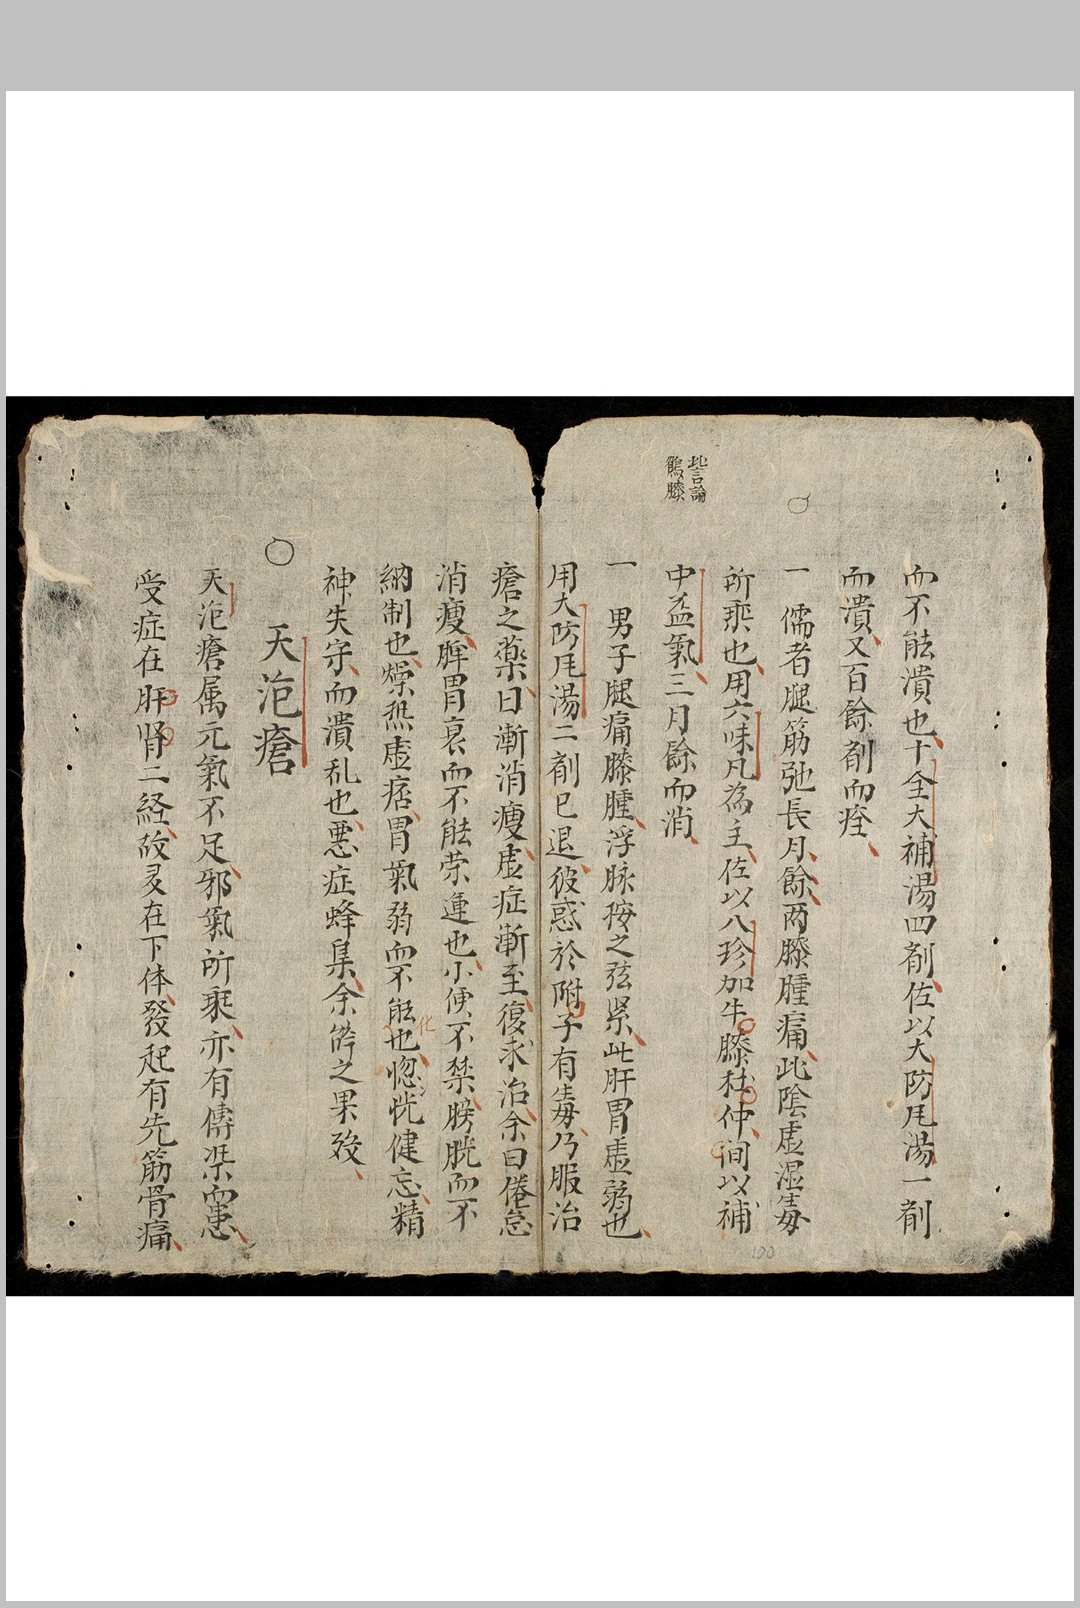 而不能潰也十全大補湯四劑佐以大防風湯一劑
而潰又百餘劑而痊
一 儒者腿筋弛長月餘兩膝腫痛此陰虛湿毒
所乘也用六味凡為主佐以八珍加牛膝杜仲間以補
中益氣三月餘而消
此言論
鶴膝
一 男子腿痛膝腫浮脉按之弦紧此肝胃虛弱也
用大防風湯二劑已退彼惑於附子有毒乃服治
瘡之藥日漸消瘦虛症漸至復求治余曰倦怠
消瘦脾胃衰而不能荣運也小便不禁膀胱而不
納制也燥热虛痞胃氣弱而不能也惚恍健忘精
化
神失守而潰乱也悪症蜂集余辞之果歿
天疱瘡
天疱瘡属元氣不足邪氣所乘亦有傳染而患
受症在肝腎二経故多在下体發起有先筋骨痛
100